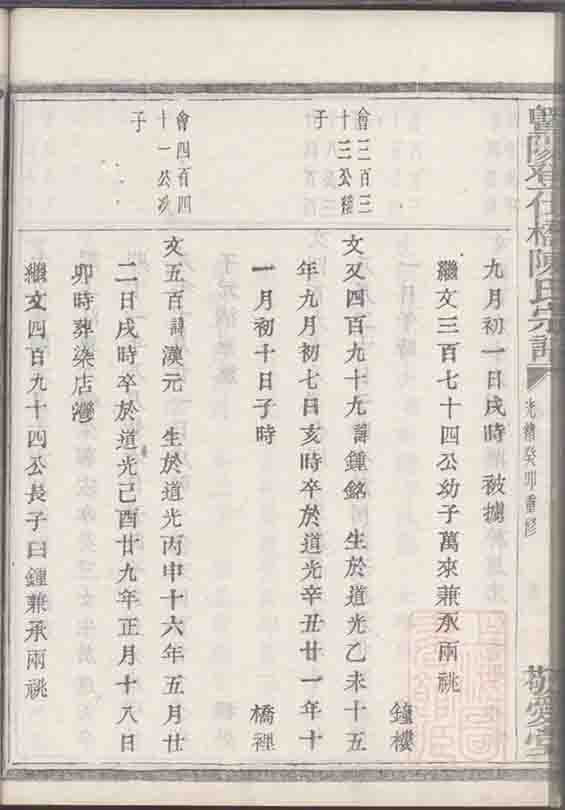 暨陽登仕橋陳氏宗譜
光緒癸卯重修
敬愛堂
九月初一日戌時 被擄
繼文三百七十四公幼子萬來兼承兩祧
鐘樓
會三百三
十三公
子
文又四百九十九諱鍾銘 生於道光乙未十五
年九月初七日亥時卒於道光辛丑廿一年十
一月初十日子時
橋裡
會四百四
十一公次
子
文五百諱漢元 生於道光丙申十六年五月廿
二日戌時卒於道光己酉廿九年正月十八日
卯時葬染店灣
繼文四百九十四公長子曰鍾兼承兩祧